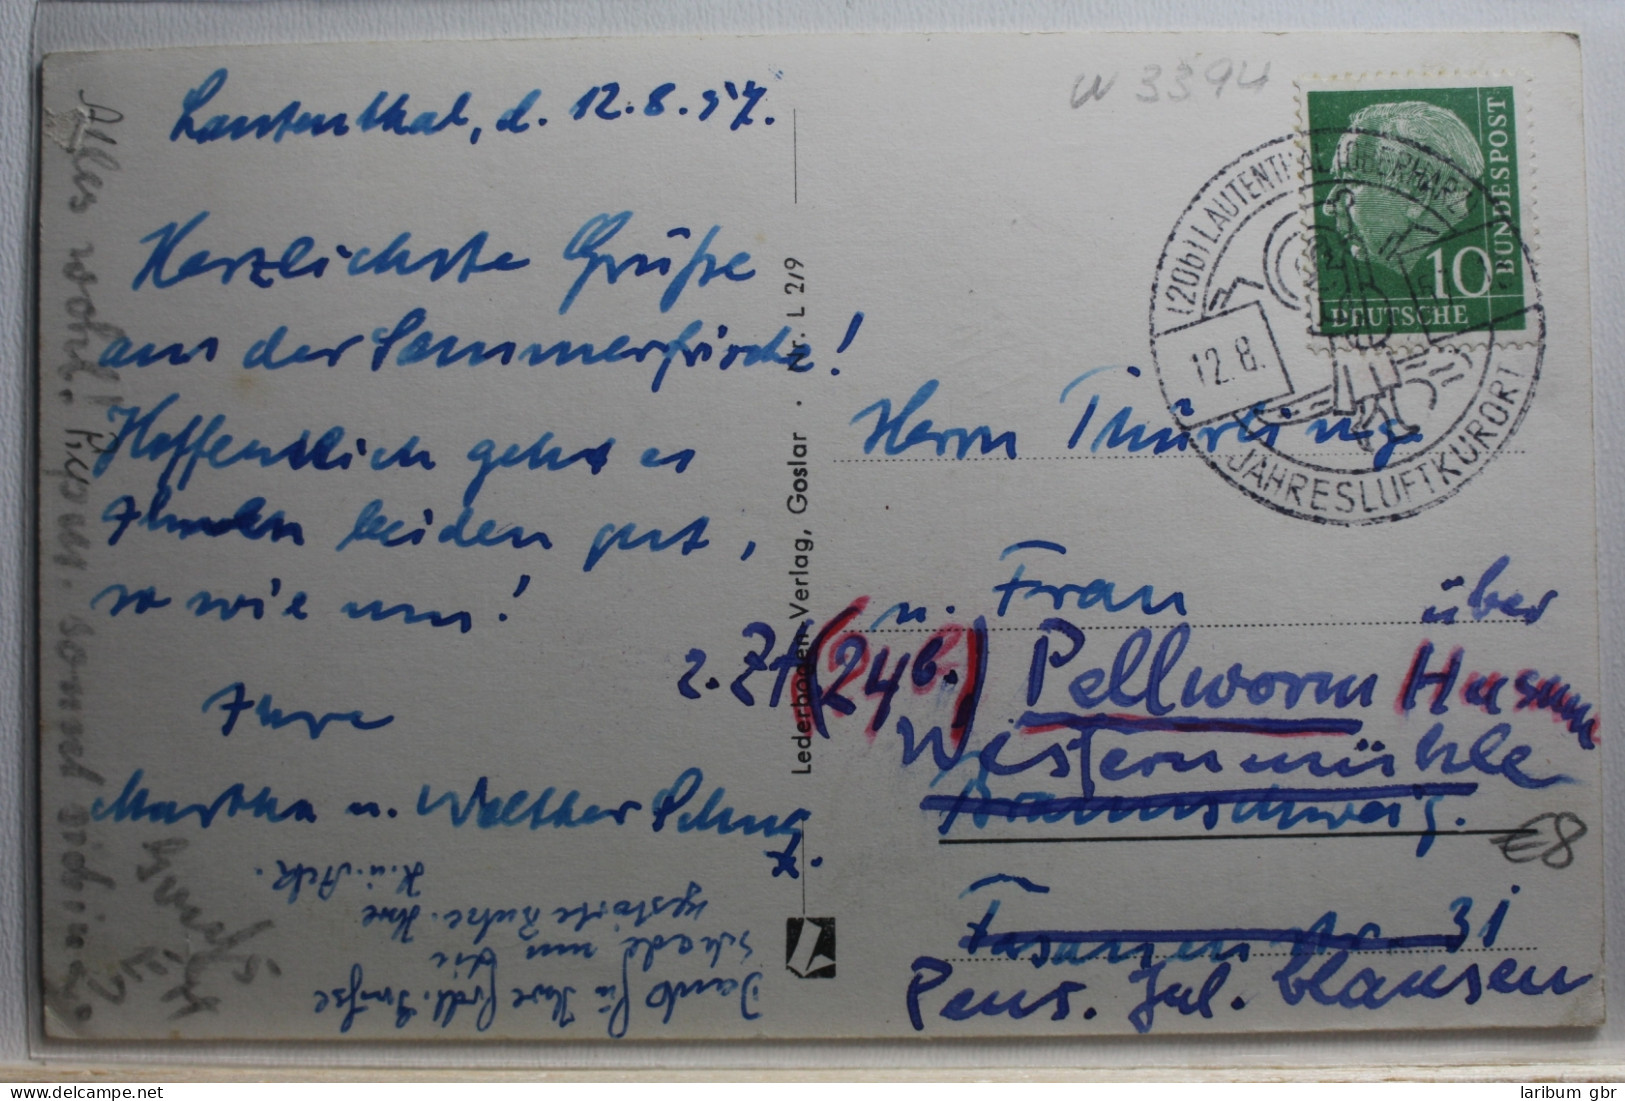 Lautenthal, d. 12.8.57.
Herzlichste Grüße
aus der Sommerfrische!
Hoffentlich geht es
Ihnen beiden gut,
so wie uns!
Ihre
Martha u. Walther
Dank für Ihre frdl. Grüße
Schade nun die
gestörte Ruhe. Ihre
K. u.
Alles wohl!
Lederbogen-Verlag, Goslar · Nr. L 2/9
W 3394
BUNDESPOST
10
DEUTSCHE
(20b) LAUTENTHAL (OBERHARZ)
12.8.
JAHRESLUFTKURORT
Herrn Thürling
u. Frau
über
z. Zt (24b.) Pellworm Husum
Westermühle
Braunschweig.
€8
Fasanenstr. 31
Pens. Jul. Clausen
laribum gbr